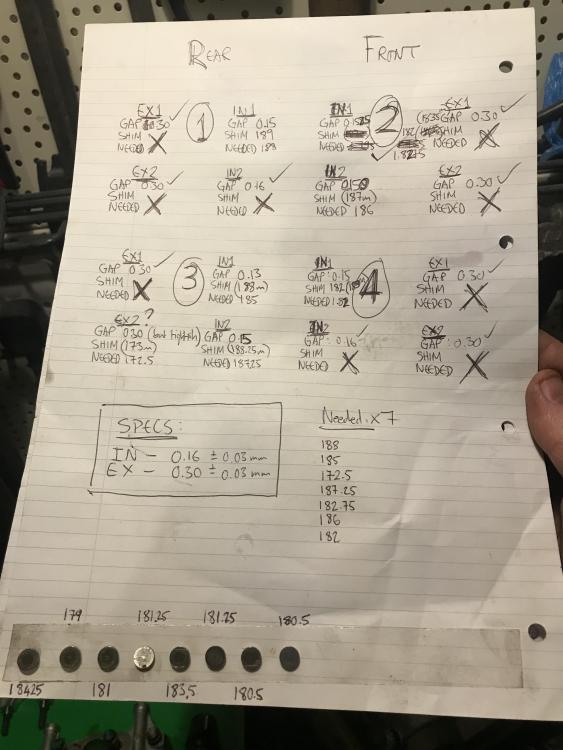 REAR
FRONT
1
EX1 ✓
GAP 0.30
SHIM
NEEDED X
IN1
GAP 0.15
SHIM 189
NEEDED 188
EX2 ✓
GAP 0.30
SHIM
NEEDED X
IN2 ✓
GAP 0.16
SHIM
NEEDED X
2
IN1
GAP
SHIM
NEEDED
✓ 182.75
EX1 ✓
GAP 0.30
SHIM
NEEDED X
IN2
GAP
SHIM (187m)
NEEDED 186
EX2 ✓
GAP 0.30
SHIM
NEEDED X
3
EX1 ✓
GAP 0.30
SHIM
NEEDED X
IN1
GAP 0.13
SHIM (188m)
NEEDED 185
EX2 ?
GAP 0.30 (but tightish)
SHIM (173m)
NEEDED 172.5
IN2
GAP 0.15
SHIM (188.25m)
NEEDED 187.25
4
IN1
GAP: 0.15
SHIM 182
NEEDED 182
EX1 ✓
GAP 0.30
SHIM
NEEDED X
IN2 ✓
GAP: 0.16
SHIM
NEEDED X
EX2 ✓
GAP: 0.30
SHIM
NEEDED X
SPECS:
IN – 0.16 ± 0.03mm
EX – 0.30 ± 0.03mm
Needed: x7
188
185
172.5
187.25
182.75
186
182
179 181.25 181.25 180.5
184.25 181 183.5 180.5